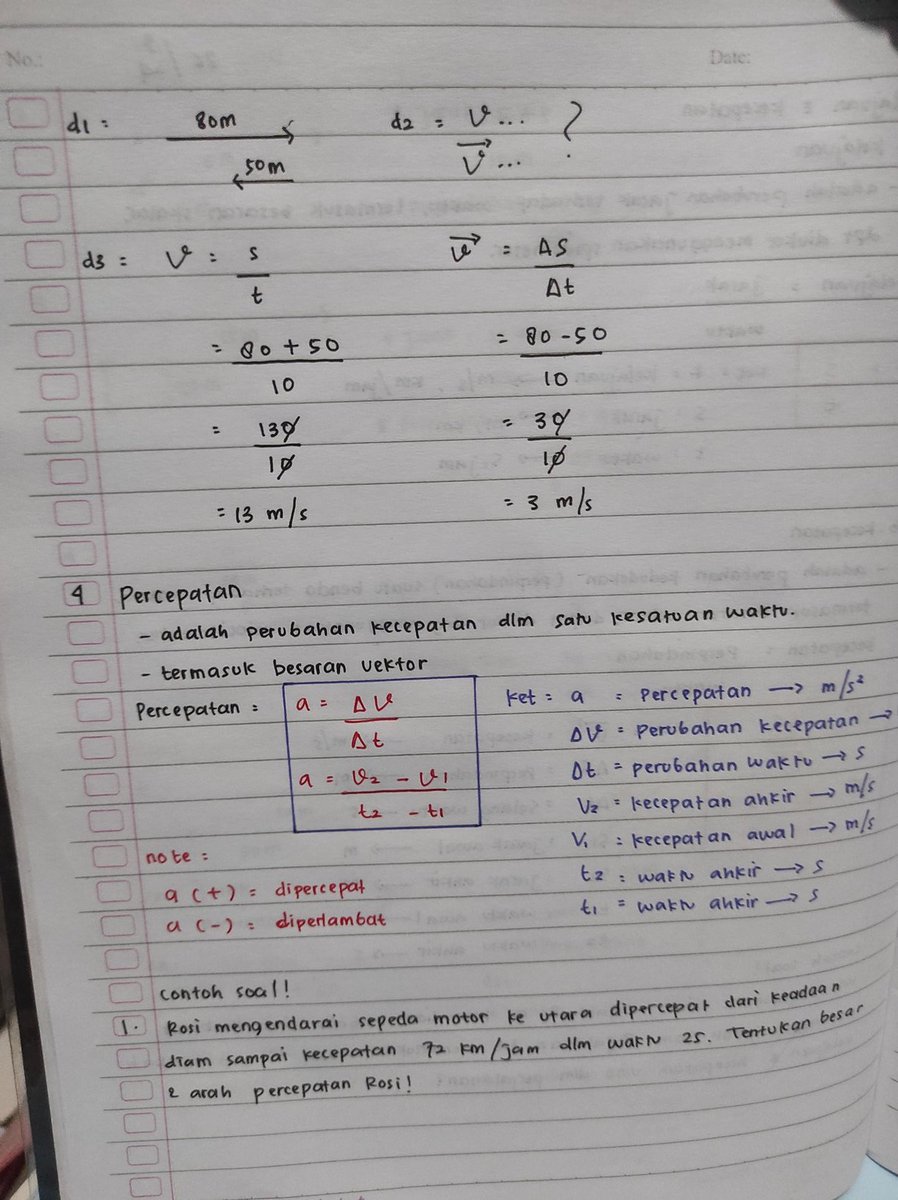 No.:
Date:
d1 = 80m d2 = v... ?
50m v...
d3 = v = s/t v = ΔS/Δt
= 80 + 50 / 10 = 80 - 50 / 10
= 130/10 = 30/10
= 13 m/s = 3 m/s
4 Percepatan
- adalah perubahan kecepatan dlm satu kesatuan waktu.
- termasuk besaran vektor
Percepatan : a = Δv/Δt ket : a = percepatan → m/s²
Δv = perubahan kecepatan →
Δt = perubahan waktu → s
a = v2 - v1 / t2 - t1 V2 = kecepatan ahkir → m/s
V1 : kecepatan awal → m/s
note :
t2 : waktu ahkir → s
a (+) = dipercepat
t1 = waktu ahkir → s
a (-) = diperlambat
contoh soal!
1. Rosi mengendarai sepeda motor ke utara dipercepat dari keadaan
diam sampai kecepatan 72 km/jam dlm waktu 2s. Tentukan besar
& arah percepatan Rosi!